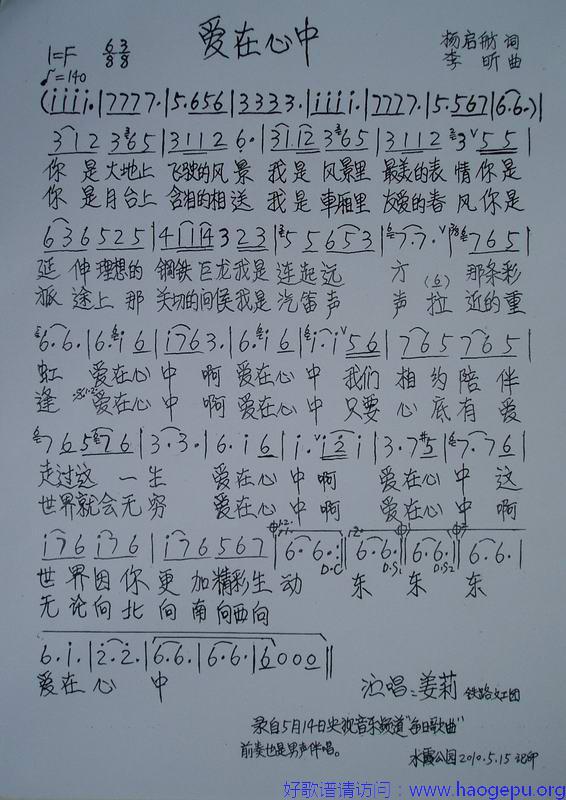 爱在心中
1=F 6/8 3/8
♪=140
杨启舫 词
李 昕 曲
(i i i i. | 7 7 7 7. | 5. 6 5 6 | 3 3 3 3. | i i i i. | 7 7 7 7. | 5. 5 6 7 | 6. 6. ) |
3 1 2 3 6 5 | 3 1 1 2 6. | 3 1. 1 2 3 6 5 | 3 1 1 2 3 5 5 |
你 是 大地上 飞驶的风景 我是 风景里 最美的表 情你是
你 是 月台上 含泪的相送 我是 车厢里 友爱的春 风你是
6 3 6 5 2 5 | 4 1 1 4 3 2 3 | 5 5 6 5 3 | 7. 7. | 7 6 5 |
延 伸 理想的 钢铁巨龙我是 连起远 方 (6) 那条彩
旅 途上 那 关切的问候我是 汽笛声 声 拉 近的重
6. 6. | 6. i 6 | i 7 6 3. | 6. i 6 | i. i 5 6 | 7 6 5 7 6 5 |
虹 爱在心 中 啊 爱在心 中 我们 相 约 陪 伴
逢 爱在心 中 啊 爱在心 中 只要 心 底 有 爱
7 6 5 7 6 | 3. 3. | 6. i 6 | i. i 2 i | 3. 7 #5 | 7. 7 6 |
走过这 一 生 爱在心 中 啊 爱在心 中 这
世界就会无 穷 爱在心 中 啊 爱在心 中 啊
i 7 6 i 7 6 | i 7 6 5 6 7 | 6. 6. :| 6. 6. | 6. 6. | 6. 6. |
D.C D.S1 D.S2
世 界 因 你 更 加精彩生 动 东 东 东
无 论向 北 向 南向西向
6. i. | 2. 2. | 6. 6. | 6. 6. | 6 0 0 0 ‖
爱在 心 中
演唱:姜莉 铁路文工团
录自5月14日央视音乐频道"每日歌曲"
前奏也是男声伴唱。
水霞公园2010.5.15 记印
好歌谱请访问：www.haogepu.org